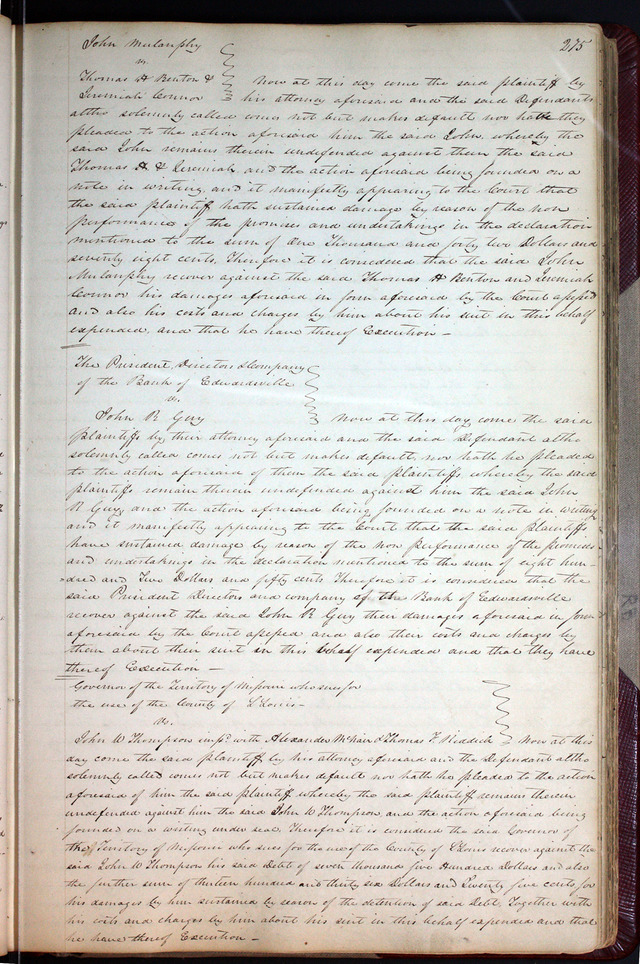 275
John Mulanphy
vs.
Thomas H Benton &
Jeremiah Connor
Now at this day come the said plaintiff by
his attorney aforesaid and the said Defendants
altho solemnly called comes not but makes default nor hath they
pleaded to the action aforesaid him the said John, whereby the
said John remains therein undefended against them the said
Thomas H & Jeremiah, and the action aforesaid being founded on a
note in writing, and it manifestly appearing to the Court that
the said plaintiff hath sustained damage by reason of the non
performance of the promises and undertakings in the declaration
mentioned to the sum of One Thousand and forty two Dollars and
seventy eight cents. Therefore it is considered that the said John
Mulanphy recover against the said Thomas H Benton and Jeremiah
Connor his damages aforesaid in form aforesaid by the Court assessed
and also his costs and charges by him about his suit in this behalf
expended, and that he have thereof Execution —
The President, Directors & Company
of the Bank of Edwardsville
vs.
John R Guy
Now at this day come the said
plaintiffs by their attorney aforesaid and the said Defendant altho
solemnly called comes not but makes default, nor hath he pleaded
to the action aforesaid of them the said plaintiffs whereby the said
plaintiffs remain therein undefended against him the said John
R Guy, and the action aforesaid being founded on a note in writing
and it manifestly appearing to the Court that the said plaintiffs
have sustained damage by reason of the non performance of the promises
and undertakings in the declaration mentioned to the sum of eight hun-
dred and Two Dollars and fifty cents Therefore it is considered that the
said President Directors and company of the Bank of Edwardsville
recover against the said John R Guy their damages aforesaid in form
aforesaid by the Court assessed and also their costs and charges by
them about their suit in this behalf expended and that they have
thereof Execution —
Governor of the Territory of Missouri who sues for
the use of the County of St Louis —
vs.
John W Thompson impd. with Alexander McNair & Thomas F Riddick
Now at this
day come the said plaintiff by his attorney aforesaid and the Defendant altho
solemnly called comes not but makes default nor hath he pleaded to the action
aforesaid of him the said plaintiff whereby the said plaintiff remains therein
undefended against him the said John W Thompson, and the action aforesaid being
founded on a writing under seal. Therefore it is considered the said Governor of
the Territory of Missouri who sues for the use of the County of St Louis recover against the
said John W Thompson his said Debt of seven thousand five Hundred Dollars and also
the further sum of thirteen hundred and thirty six Dollars and Twenty five cents for
his damages by him sustained by reason of the detention of said Debt, Together with
his costs and charges by him about his suit in this behalf expended and that
he have thereof Execution —